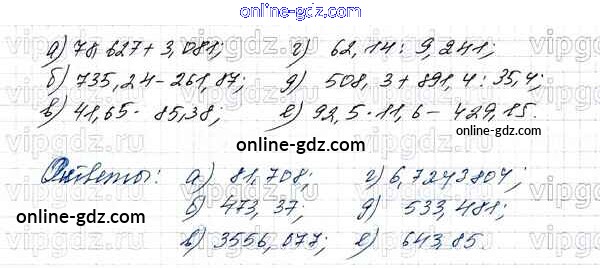 online-gdz.com
а) 78,627 + 3,081; г) 62,14 : 9,241;
б) 735,24 - 261,87; д) 508,3 + 891,4 : 35,4;
в) 41,65 · 85,38; е) 92,5 · 11,6 - 429,15.
online-gdz.com
Ответы: а) 81,708; г) 6,7243804;
online-gdz.com
б) 473,37; д) 533,481;
в) 3556,077; е) 643,85.
online-gdz.com